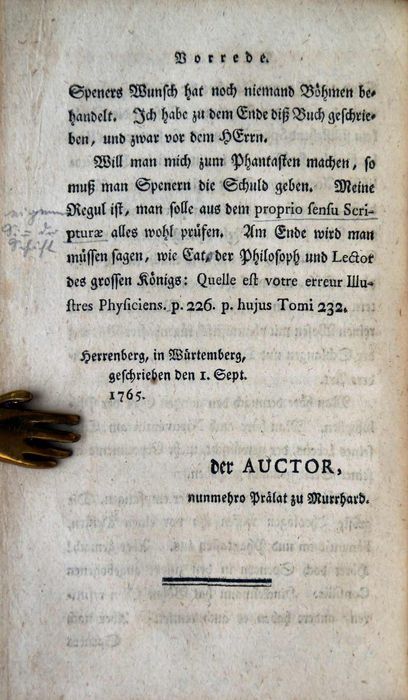 Vorrede.
Speners Wunsch hat noch niemand Böhmen be-
handelt. Ich habe zu dem Ende diß Buch geschrie-
ben, und zwar vor dem HErrn.
Will man mich zum Phantasten machen, so
muß man Spenern die Schuld geben. Meine
Regul ist, man solle aus dem proprio sensu Scri-
pturæ alles wohl prüfen. Am Ende wird man
müssen sagen, wie Cat, der Philosoph und Lector
des grossen Königs: Quelle est votre erreur Illu-
stres Physiciens. p. 226. p. hujus Tomi 232.
Herrenberg, in Würtemberg,
geschrieben den 1. Sept.
1765.
der AUCTOR,
nunmehro Prälat zu Murrhard.